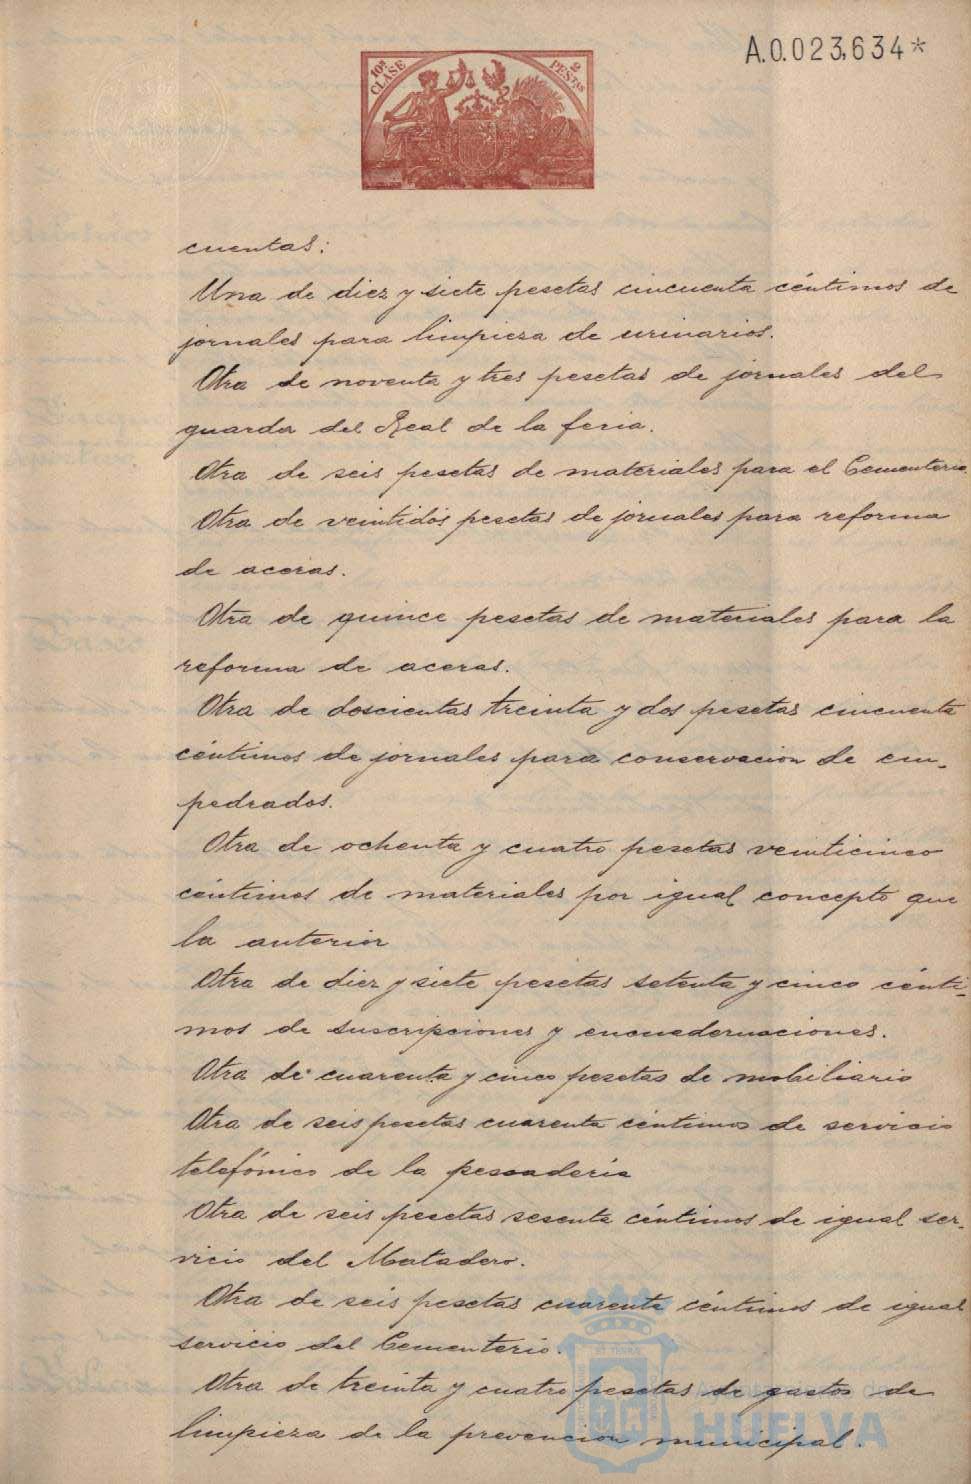 A.0.023,634*
10ª CLASE
2 PESTAS
cuentas:
Una de diez y siete pesetas cincuenta céntimos de
jornales para limpieza de urinarios.
Otra de noventa y tres pesetas de jornales del
guarda del Real de la feria.
Otra de seis pesetas de materiales para el Cementerio.
Otra de veintidós pesetas de jornales para reforma
de aceras.
Otra de quince pesetas de materiales para la
reforma de aceras.
Otra de doscientas treinta y dos pesetas cincuenta
céntimos de jornales para conservacion de em-
pedrados.
Otra de ochenta y cuatro pesetas veinticinco
céntimos de materiales por igual concepto que
la anterior
Otra de diez y siete pesetas setenta y cinco cénti-
mos de suscripciones y encuadernaciones.
Otra de cuarenta y cinco pesetas de mobiliario
Otra de seis pesetas cuarenta céntimos de servicio
telefónico de la pescadería
Otra de seis pesetas sesenta céntimos de igual ser-
vicio del Matadero.
Otra de seis pesetas cuarenta céntimos de igual
servicio del Cementerio.
Otra de treinta y cuatro pesetas de gastos de
limpieza de la prevencion municipal.
HUELVA